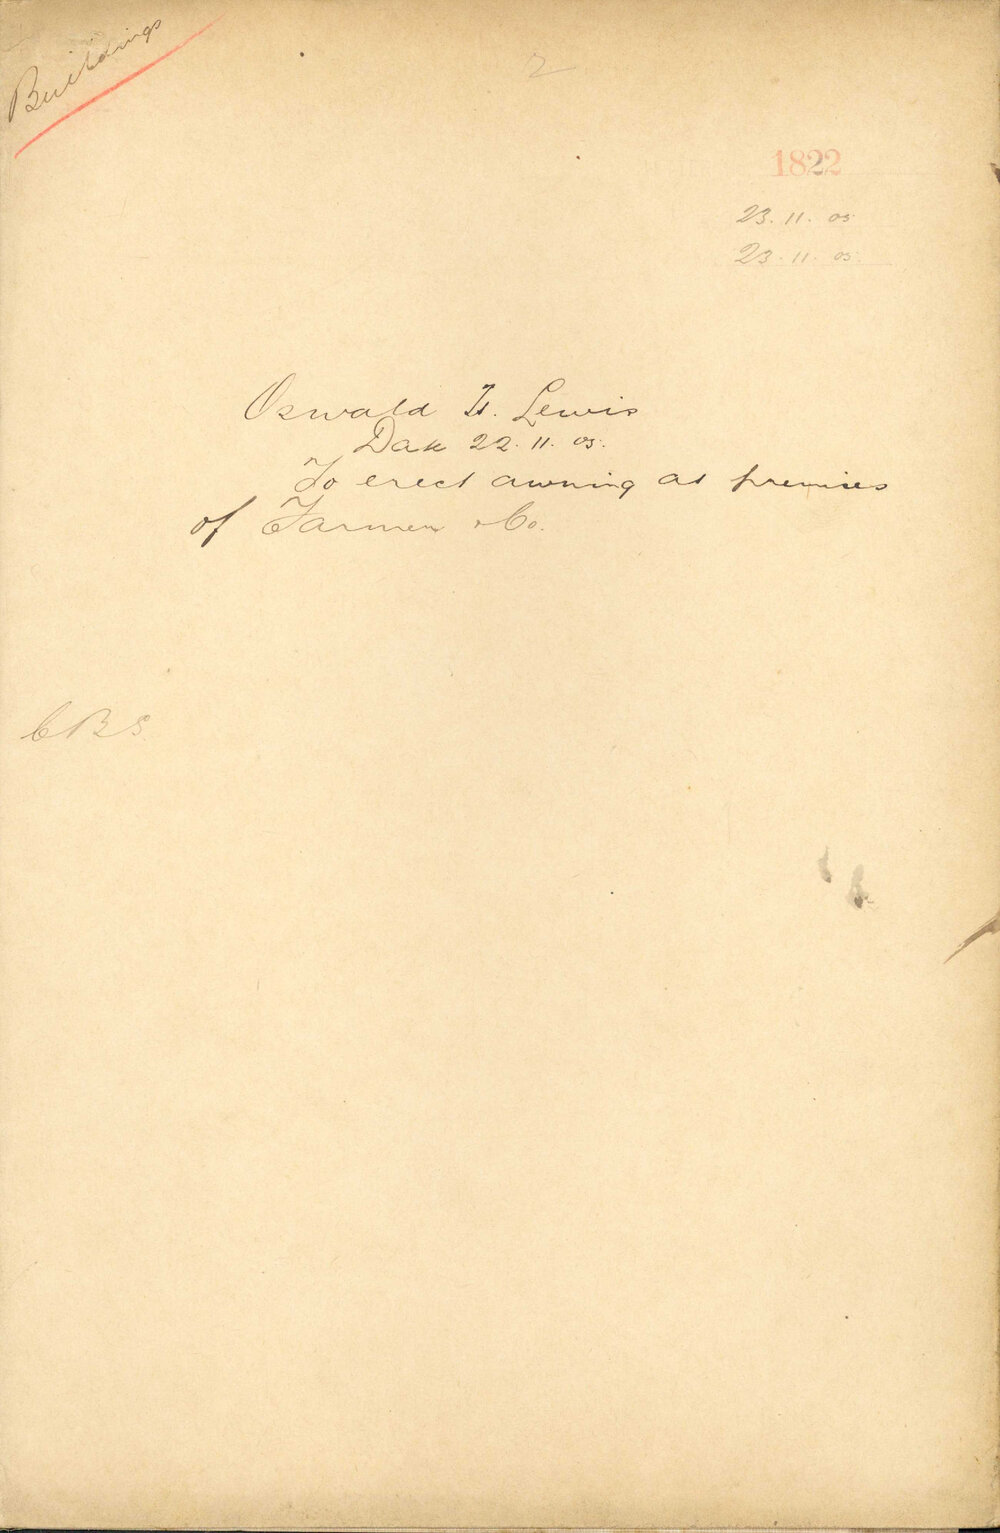 Buildings
2
1822
23.11.05
23.11.05.
Oswald H. Lewis
Date 22.11.05.
To erect awning at premises
of Farmer & Co.
CBS